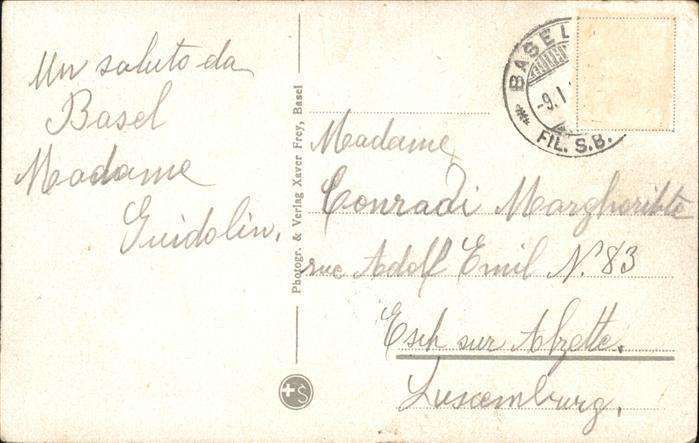 Un saluto da
Basel
Madame
Guidolin.
Photogr. & Verlag Xaver Frey, Basel
S
BASEL
-9.I.
FIL. S.B.
Madame
Conradi Margheribte
rue Adolf Emil N. 83
Esch sur Alzette.
Luxemburg.